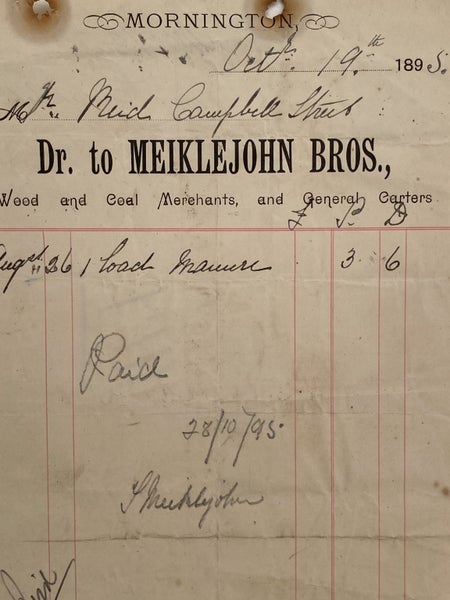 MORNINGTON,
Octr. 19.th 1895.
Mr Reid Campbell Street
Dr. to MEIKLEJOHN BROS.,
Wood and Coal Merchants, and General Carters
£ S D
Augst 26 1 Load Manure 3 6
Paid
28/10/95
J Meiklejohn
Paid